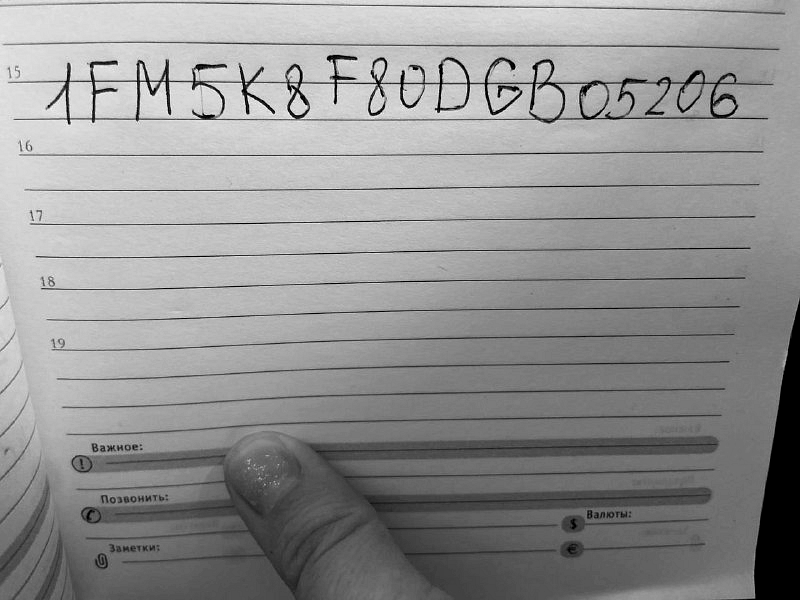 15 1FM5K8F80DGB05206
16
17
18
19
Важное:
Позвонить:
Валюты:
$
Заметки:
€